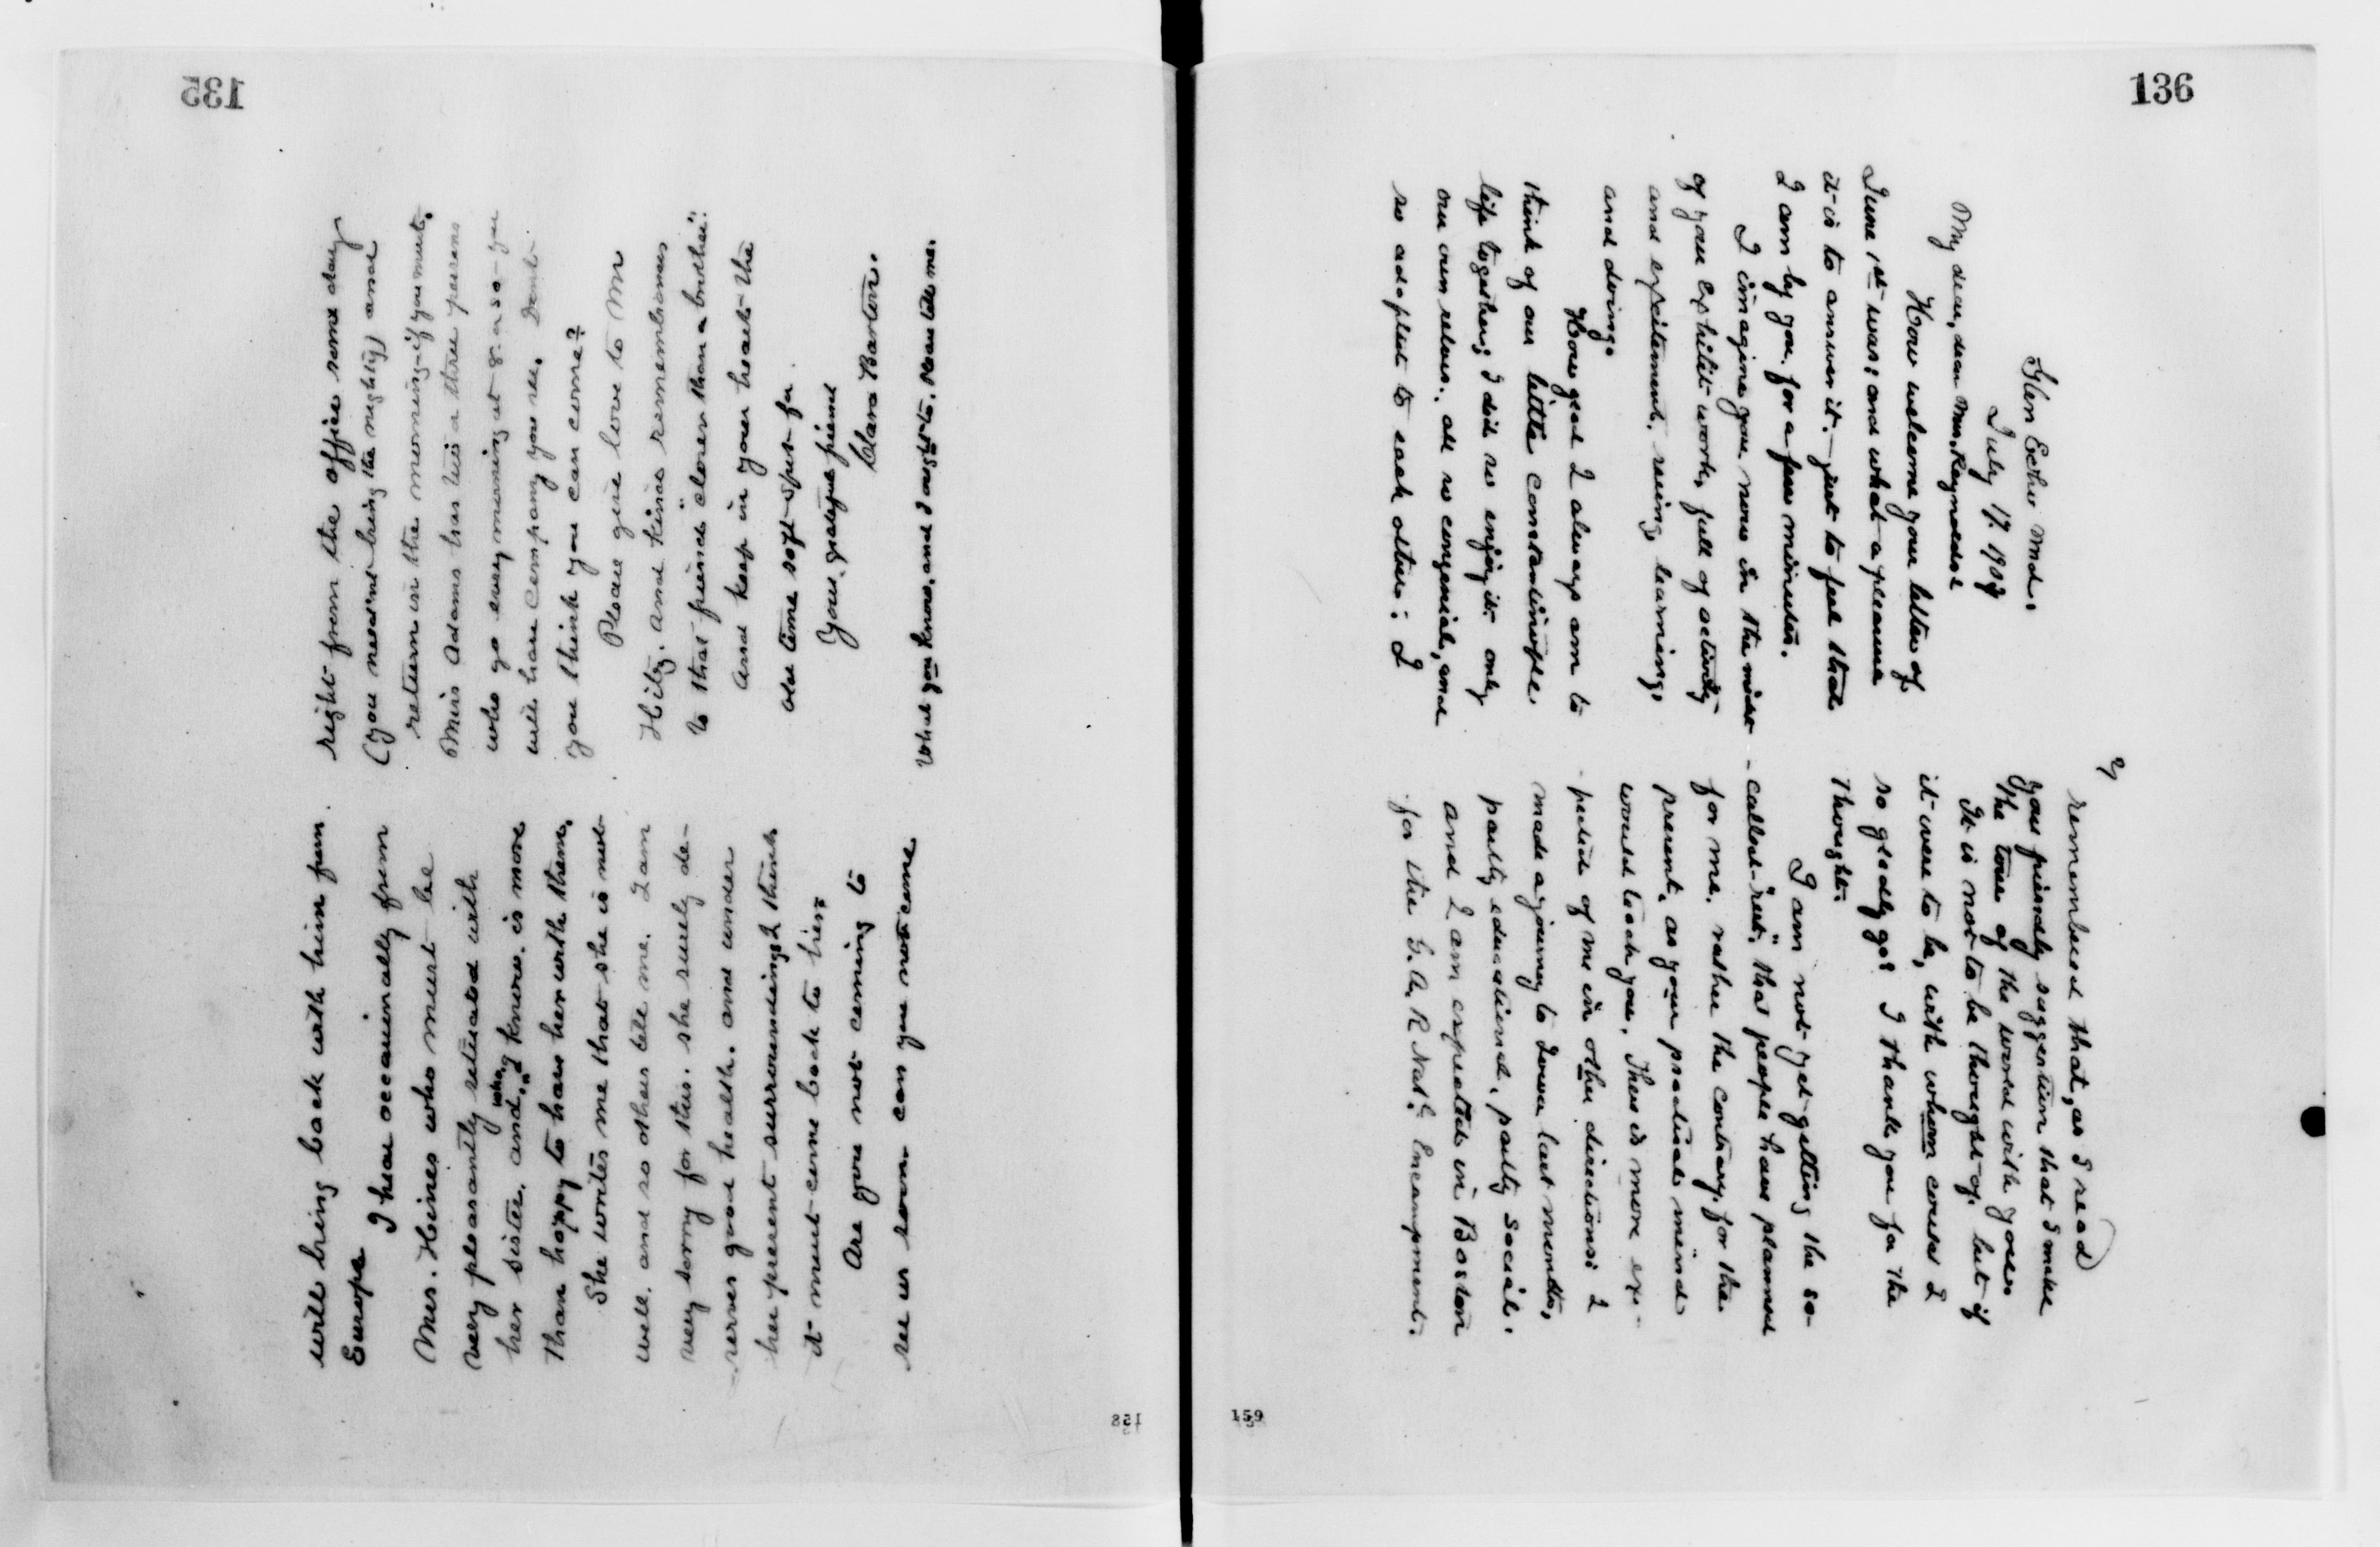 135
will bring back with him from
Europe
I hear occasionally from
Mrs. Hines who must be
very pleasantly situated with
her sister, and, who, knows. is more
than happy to have her with them.
She writes me that she is not
well. and so others tell me. I am
very sorry for this. she surely de-
-serves good health. and under
her present surroundings I think
it must come back to her
Are you not coming to
see us soon can you not come
right from the office some day
(you need not bring the nighty) and
return in the morning - if you must.
Miss Adams has two or three persons
who go every morning at 8. or so - you
will have company you see. Don't
you think you can come?
Please give love to Mr
Hitz. and kind remembrances
to that friend "closer than a brother".
and keep in your heart the
old time soft spot for
Your grateful friend
Clara Barton.
What you know, and I ought to. Please tell me.
158
136
Glen Echo Md.
July 17. 1904
My dear, dear Mrs. Reynolds:
How welcome your letter of
June 1st was: and what a pleasure
it is to answer it. - just to feel that
I am by you. for a few minutes.
I imagine you now in the midst
of your Exhibit work, full of activity
and excitement, seeing, learning,
and doing.
How glad I always am to
think of our little Constantinople
life together; I did so enjoy it. only
our own selves., all so congenial, and
so adapted to each other: I
2
remembered that, as I read
your friendly suggestion that I make
the tour of the world with you.
It is not to be thought of. but if
it were to be, with whom could I
so gladly go? I thank you for the
thought.
I am not yet getting the so-
-called "rest", that people have planned
for me. rather the contrary. for the
present, as your practical mind
would teach you. There is more ex-
-pected of me in other directions: I
made a journey to Iowa last month,
partly educational, partly social.
and I am expected in Boston
for the G. A. R Natl. Encampment.
159